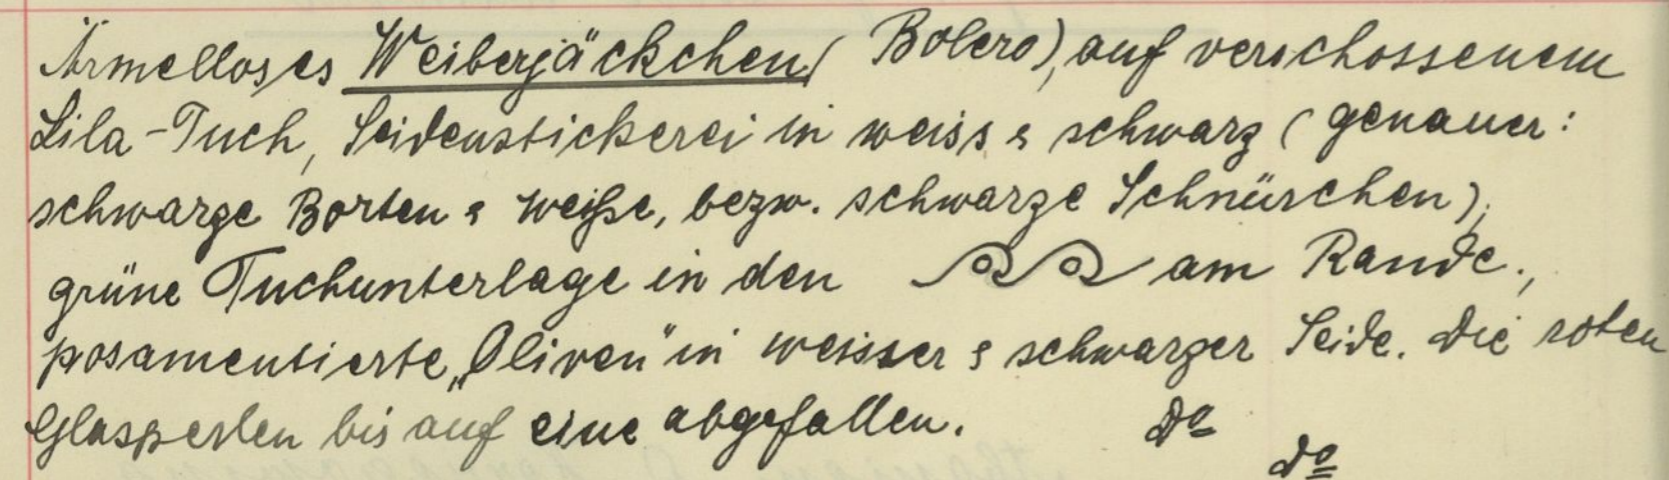 Ärmelloses Weiberjäckchen (Bolero), auf verschossenem
Lila-Tuch, Seidenstickerei in weiss & schwarz (genauer:
schwarze Borten & weiße, bezw. schwarze Schnürchen);
grüne Tuchunterlage in den am Rande.,
posamentierte „Oliven" in weisser & schwarzer Seide. Die roten
Glasperlen bis auf eine abgefallen. do
do